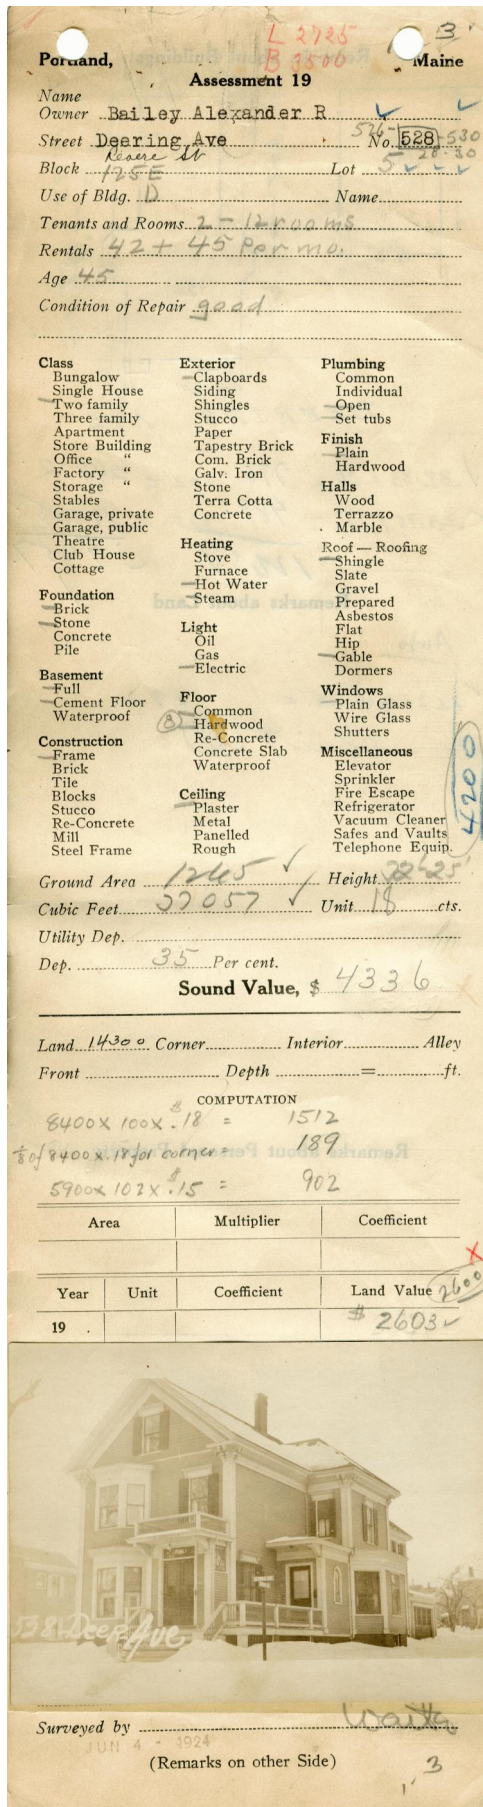 L 2725
B 3500
3
Portland, Maine
Assessment 19
Name
Owner Bailey Alexander R
526- 528 -530
Street Deering Ave No. 28-30
Revere St
Block 125E Lot 5
Use of Bldg. D Name
Tenants and Rooms 2 - 12 rooms
Rentals 42 + 45 Per mo.
Age 45
Condition of Repair good
Class
Bungalow
Single House
Two family
Three family
Apartment
Store Building
Office "
Factory "
Storage "
Stables
Garage, private
Garage, public
Theatre
Club House
Cottage
Foundation
Brick
Stone
Concrete
Pile
Basement
Full
Cement Floor
Waterproof
Construction
Frame
Brick
Tile
Blocks
Stucco
Re-Concrete
Mill
Steel Frame
Exterior
Clapboards
Siding
Shingles
Stucco
Paper
Tapestry Brick
Com. Brick
Galv. Iron
Stone
Terra Cotta
Concrete
Heating
Stove
Furnace
Hot Water
Steam
Light
Oil
Gas
Electric
Floor
Common
Hardwood
Re-Concrete
Concrete Slab
Waterproof
Ceiling
Plaster
Metal
Panelled
Rough
Plumbing
Common
Individual
Open
Set tubs
Finish
Plain
Hardwood
Halls
Wood
Terrazzo
Marble
Roof — Roofing
Shingle
Slate
Gravel
Prepared
Asbestos
Flat
Hip
Gable
Dormers
Windows
Plain Glass
Wire Glass
Shutters
Miscellaneous
Elevator
Sprinkler
Fire Escape
Refrigerator
Vacuum Cleaner
Safes and Vaults
Telephone Equip.
4200
Ground Area 1265 Height 22'-25'
Cubic Feet 37057 Unit 18 cts.
Utility Dep.
Dep. 35 Per cent.
Sound Value, $ 4336
Land 14300 Corner Interior Alley
Front Depth = ft.
COMPUTATION
8400 x 100 x $.18 = 1512
1/8 of 8400 x .18 for corner = 189
5900 x 102 x $.15 = 902
Area Multiplier Coefficient
Year Unit Coefficient Land Value 2600
19 . $ 2603
538 Deer Ave
Surveyed by
JUN 4 - 1924
(Remarks on other Side)
3